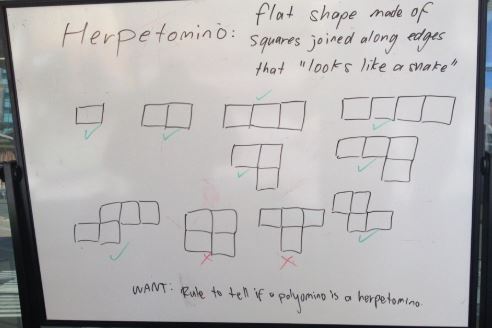 Herpetomino: flat shape made of
squares joined along edges
that "looks like a snake"
WANT: Rule to tell if a polyomino is a herpetomino.